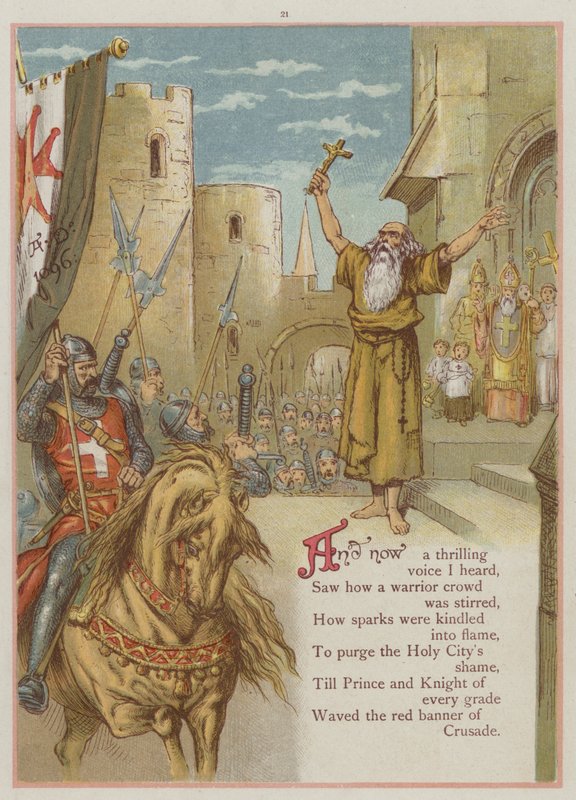 21
A:D:
1096:
And now a thrilling
voice I heard,
Saw how a warrior crowd
was stirred,
How sparks were kindled
into flame,
To purge the Holy City's
shame,
Till Prince and Knight of
every grade
Waved the red banner of
Crusade.